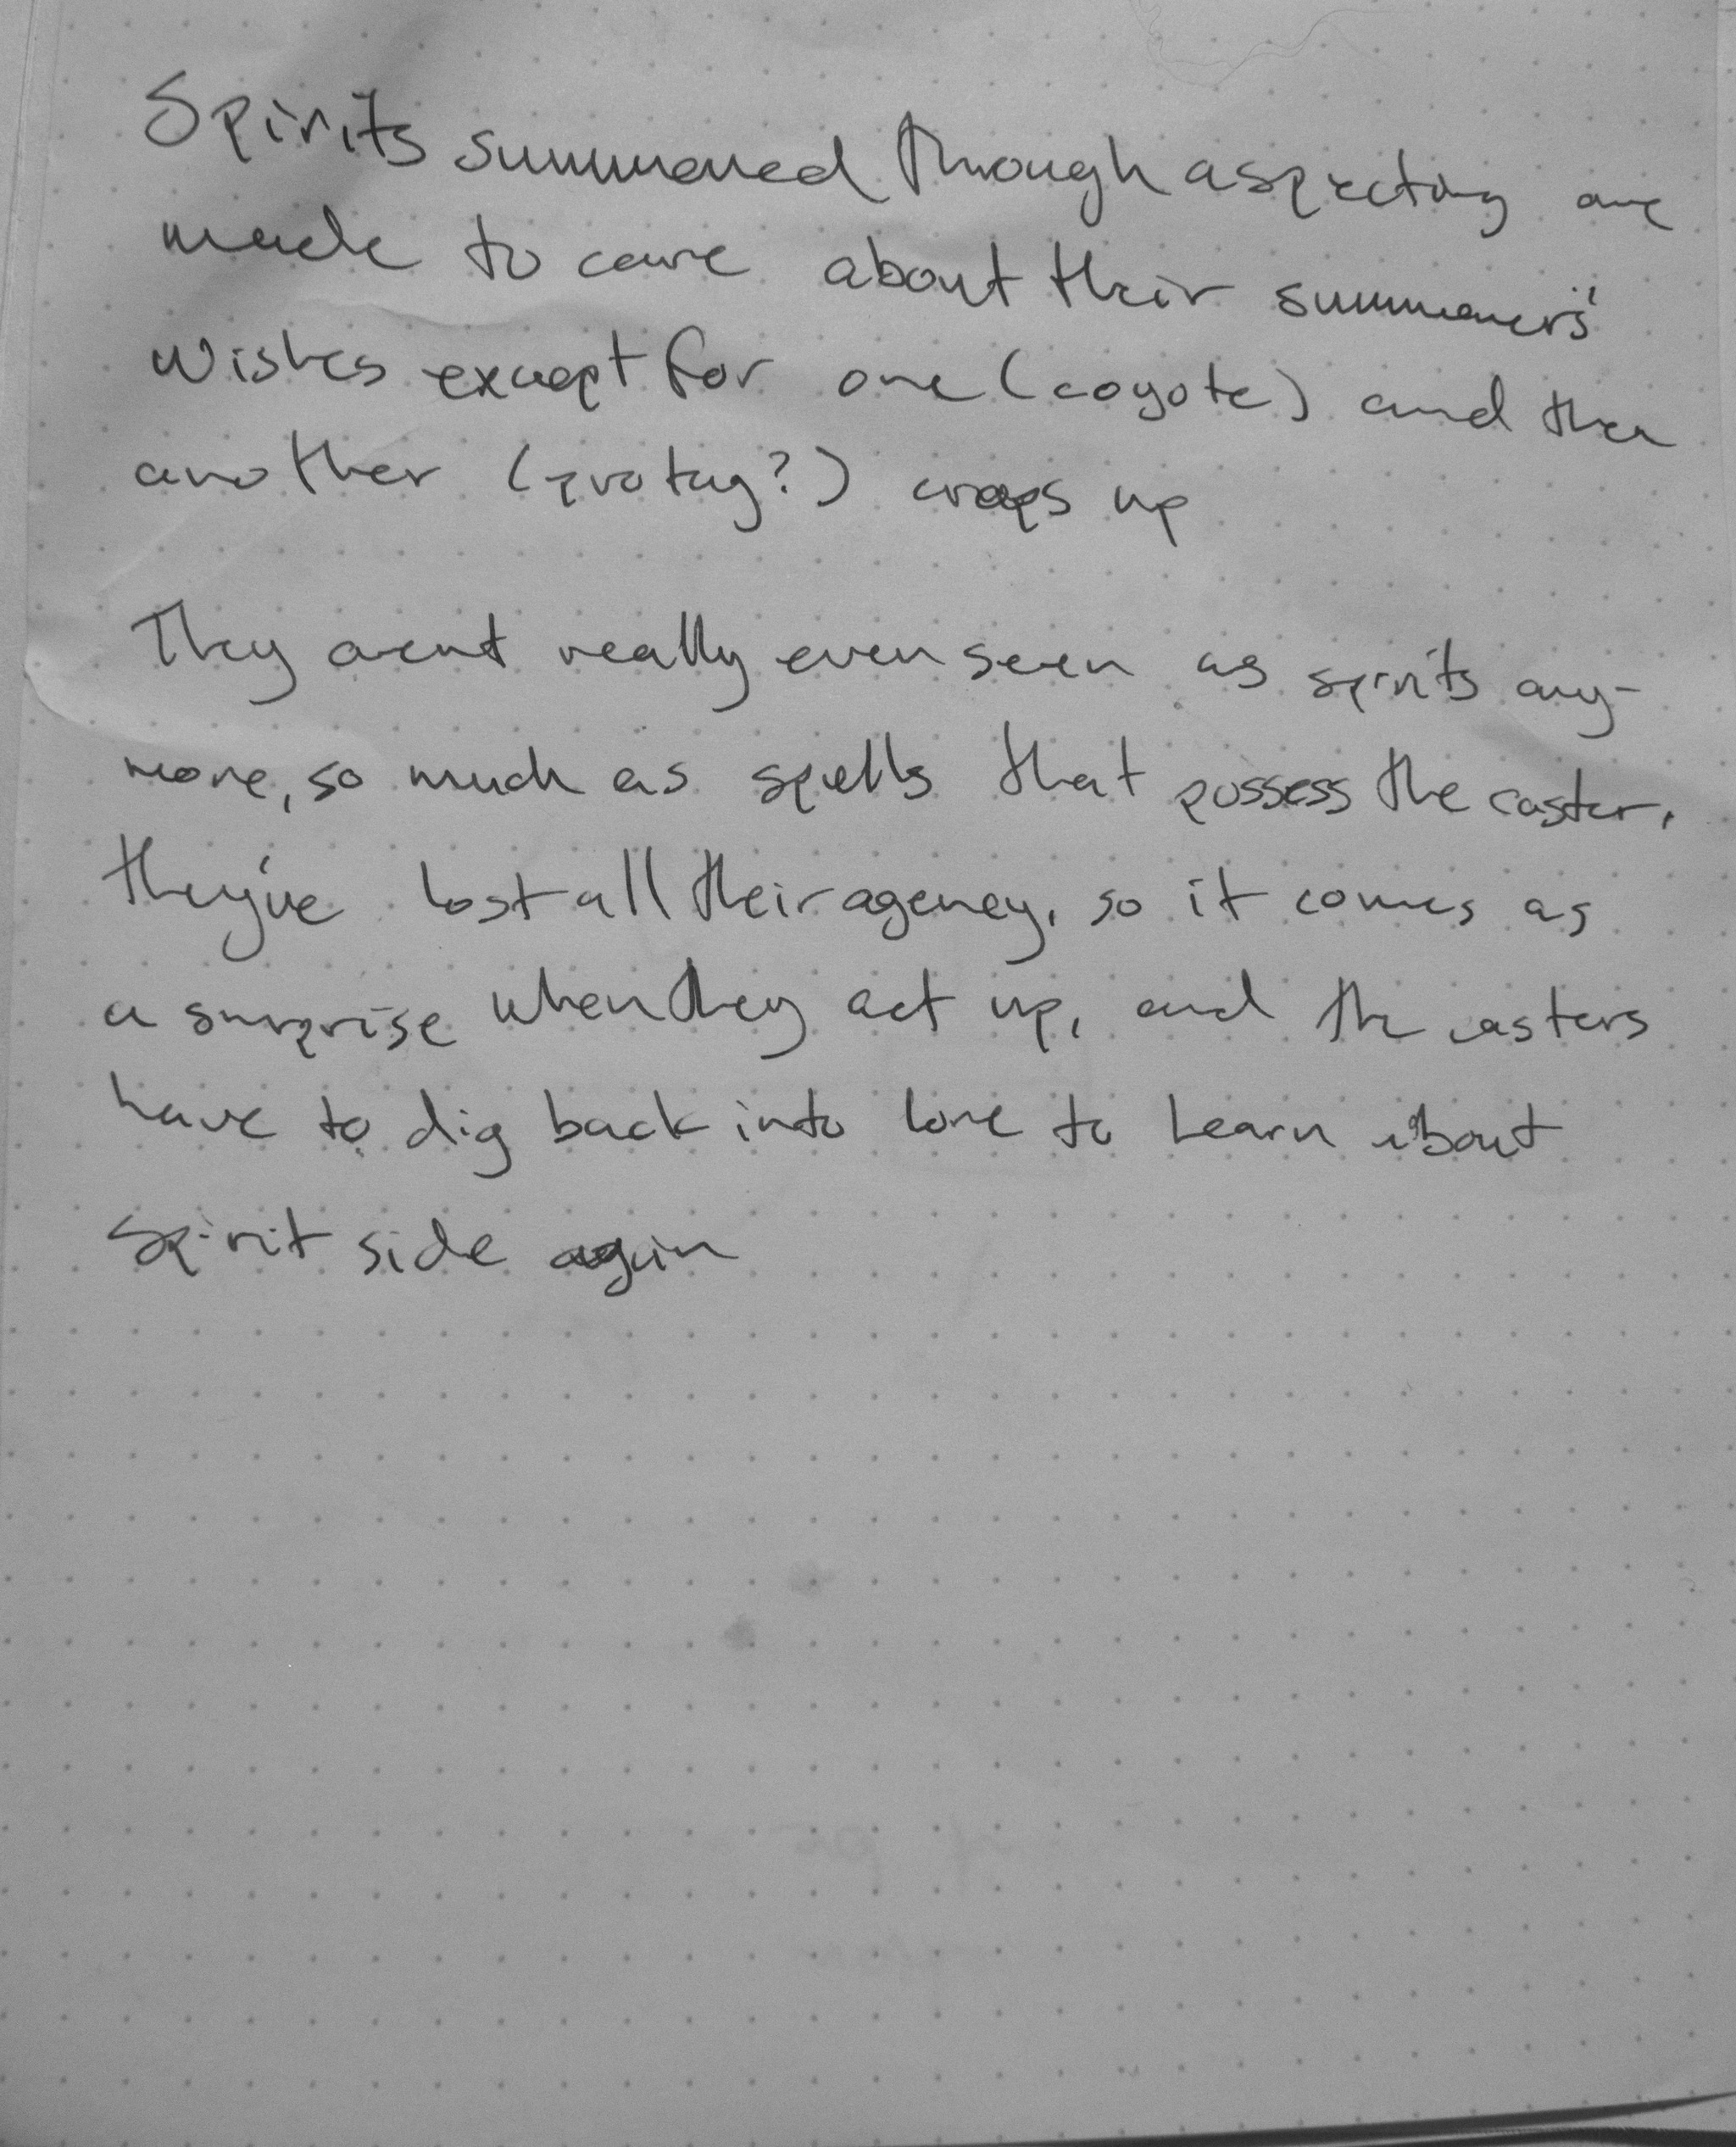 Spirits summoned through aspecting are
made to care about their summoners'
wishes except for one (coyote) and then
another (protag?) crops up
They arent really even seen as spirits any-
more, so much as spells that possess the caster,
they've lost all their agency, so it comes as
a surprise when they act up, and the casters
have to dig back into lore to learn about
spirit side again